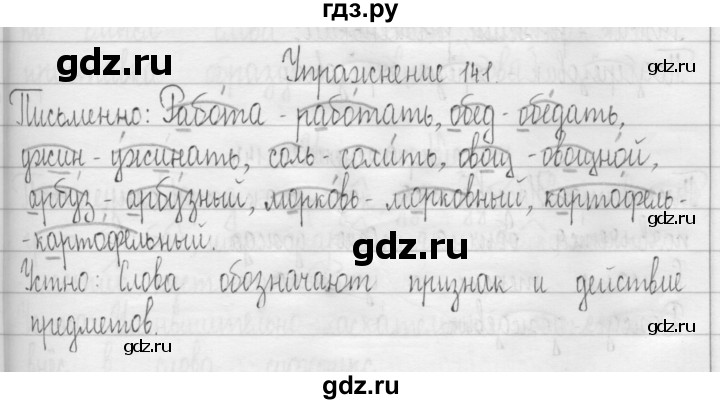 гдз.ру
gdz.ru
Упражнение 141.
gdz.ru
Письменно: Работа - работать, обед - обедать,
ужин - ужинать, соль - солить, овощ - овощной,
арбуз - арбузный, морковь - морковный, картофель-
gdz.ru
-картофельный.
gdz.ru
Устно: Слова обозначают признак и действие
предметов.
gdz.ru
gdz.ru
gdz.ru